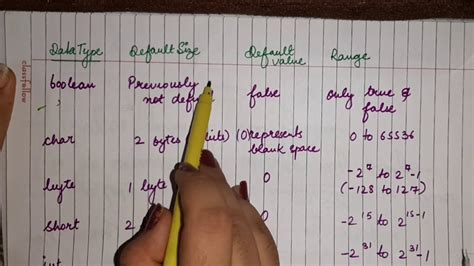 classfellow
Data Type Default Size Default value Range
boolean Previously not false only true & false
char 2 bytes (0) represents blank space 0 to 65536
byte 1 byte 0 -2⁷ to 2⁷-1 (-128 to 127)
short 2 0 -2¹⁵ to 2¹⁵⁻¹
int -2³¹ to 2³¹-1